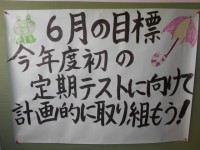 6月の目標
今年度初の
定期テストに向けて
計画的に取り組もう!